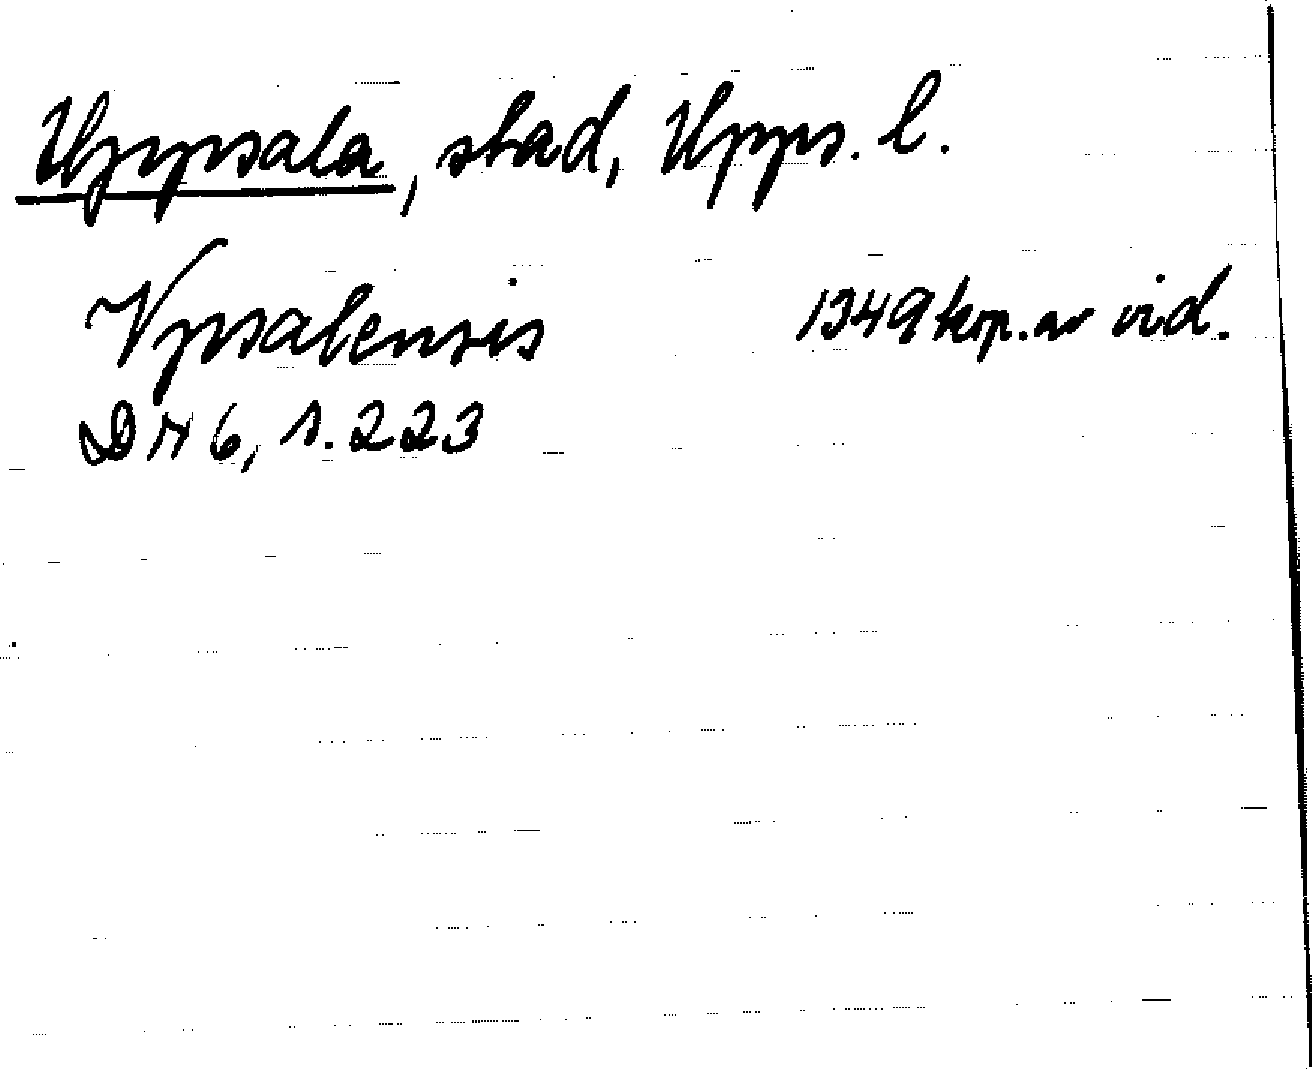 Uppsala, stad, Upps. l.
Vpsalensis 1349 kop. av vid.
DN 6, s. 223